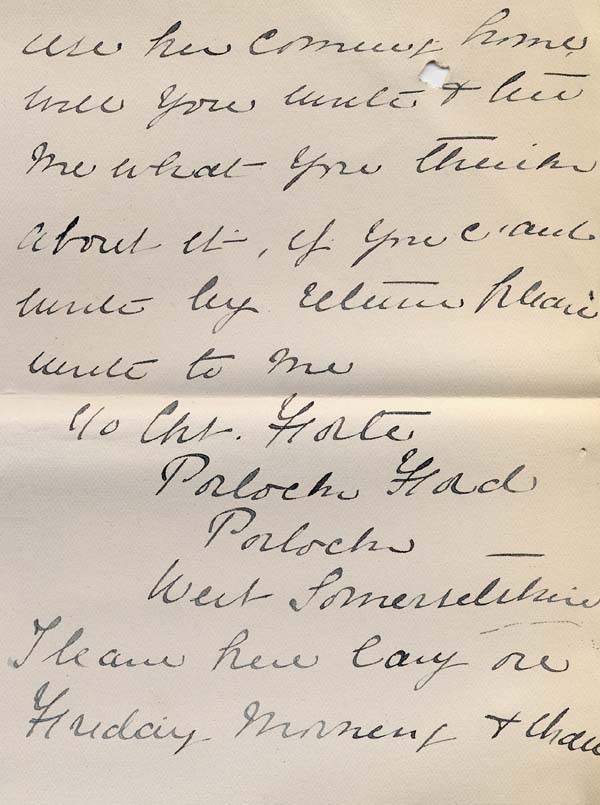 use her coming home,
will you write & let
me what you think
about it, if you can't
write by return please
write to me
c/o Cpt.
Porlock Ford
Porlock
West Somersetshire
I leave here early on
Friday Morning & shall